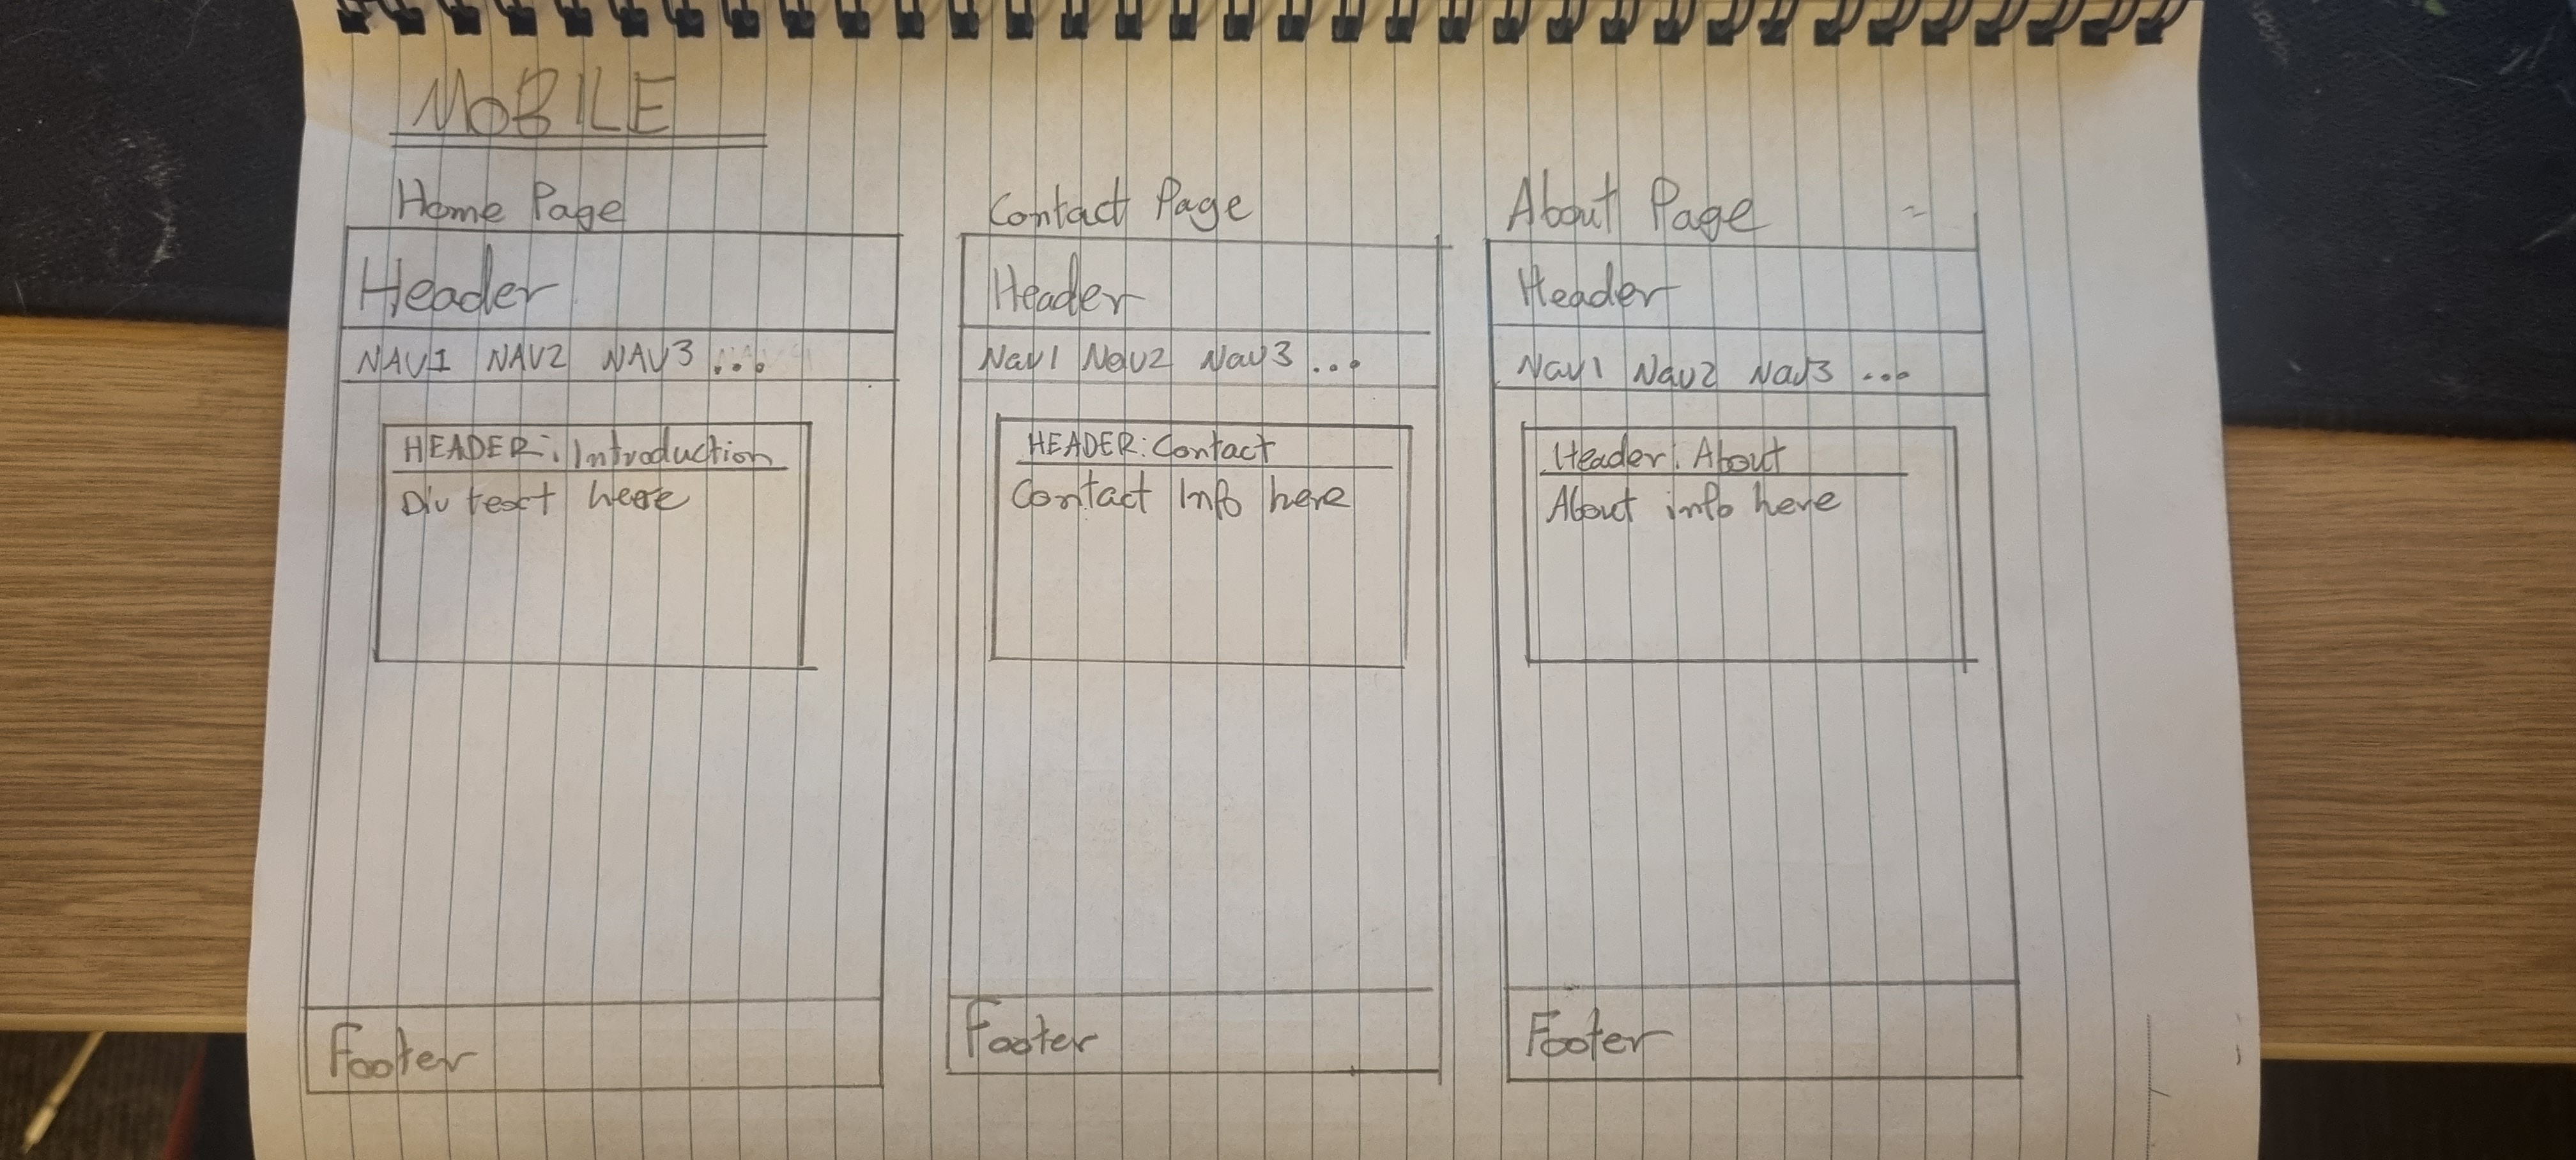 MOBILE
Home Page
Header
NAV1 NAV2 NAV3 ...
HEADER: Introduction
Div text here
Footer
Contact Page
Header
Nav1 Nav2 Nav3 ...
HEADER: Contact
Contact Info here
Footer
About Page
Header
Nav1 Nav2 Nav3 ...
Header: About
About info here
Footer